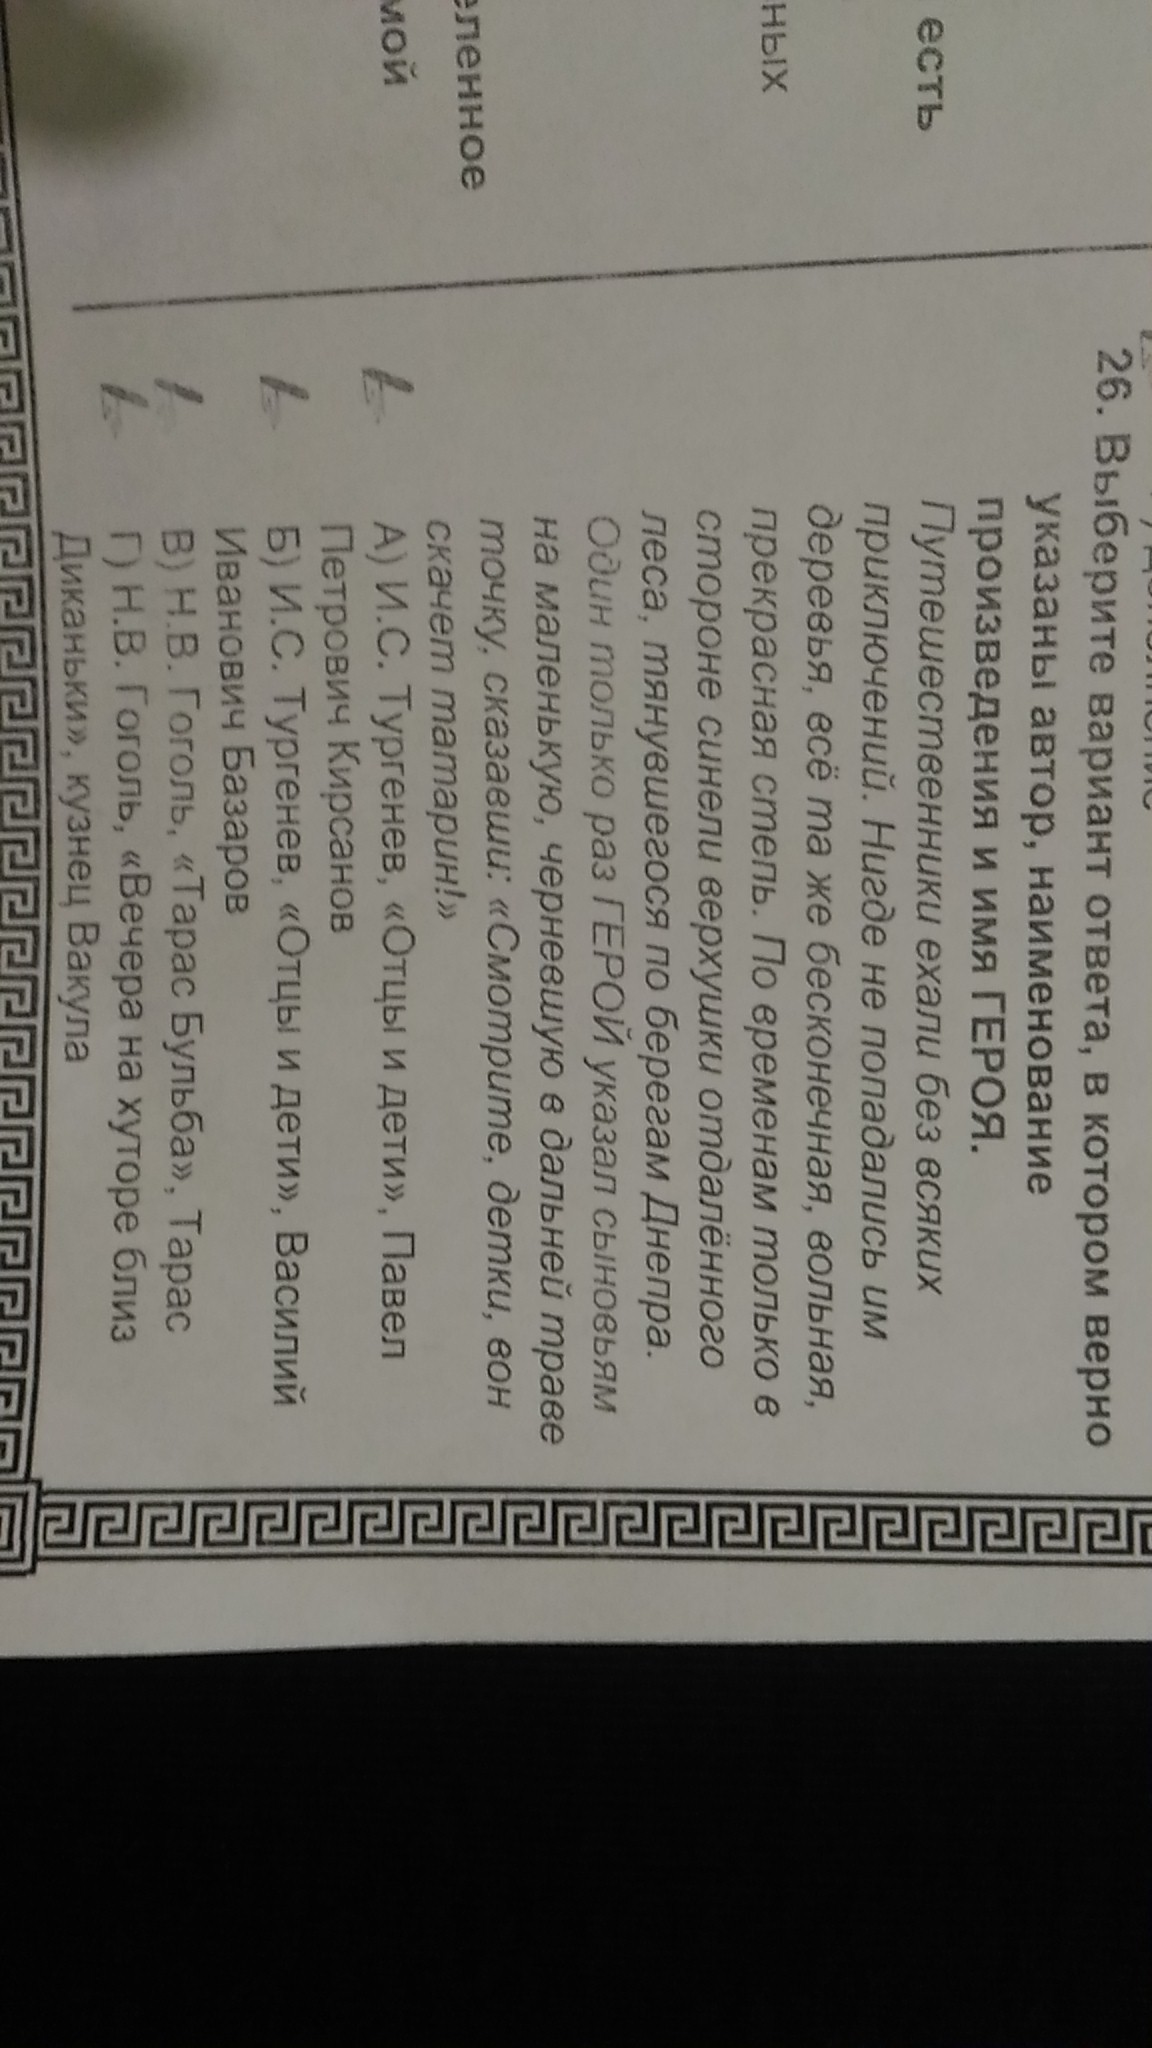 есть
ных
еленное
мой
26. Выберите вариант ответа, в котором верно
указаны автор, наименование
произведения и имя ГЕРОЯ.
Путешественники ехали без всяких
приключений. Нигде не попадались им
деревья, всё та же бесконечная, вольная,
прекрасная степь. По временам только в
стороне синели верхушки отдалённого
леса, тянувшегося по берегам Днепра.
Один только раз ГЕРОЙ указал сыновьям
на маленькую, черневшую в дальней траве
точку, сказавши: «Смотрите, детки, вон
скачет татарин!»
А) И.С. Тургенев, «Отцы и дети», Павел
Петрович Кирсанов
Б) И.С. Тургенев, «Отцы и дети», Василий
Иванович Базаров
В) Н.В. Гоголь, «Тарас Бульба», Тарас
Г) Н.В. Гоголь, «Вечера на хуторе близ
Диканьки», кузнец Вакула